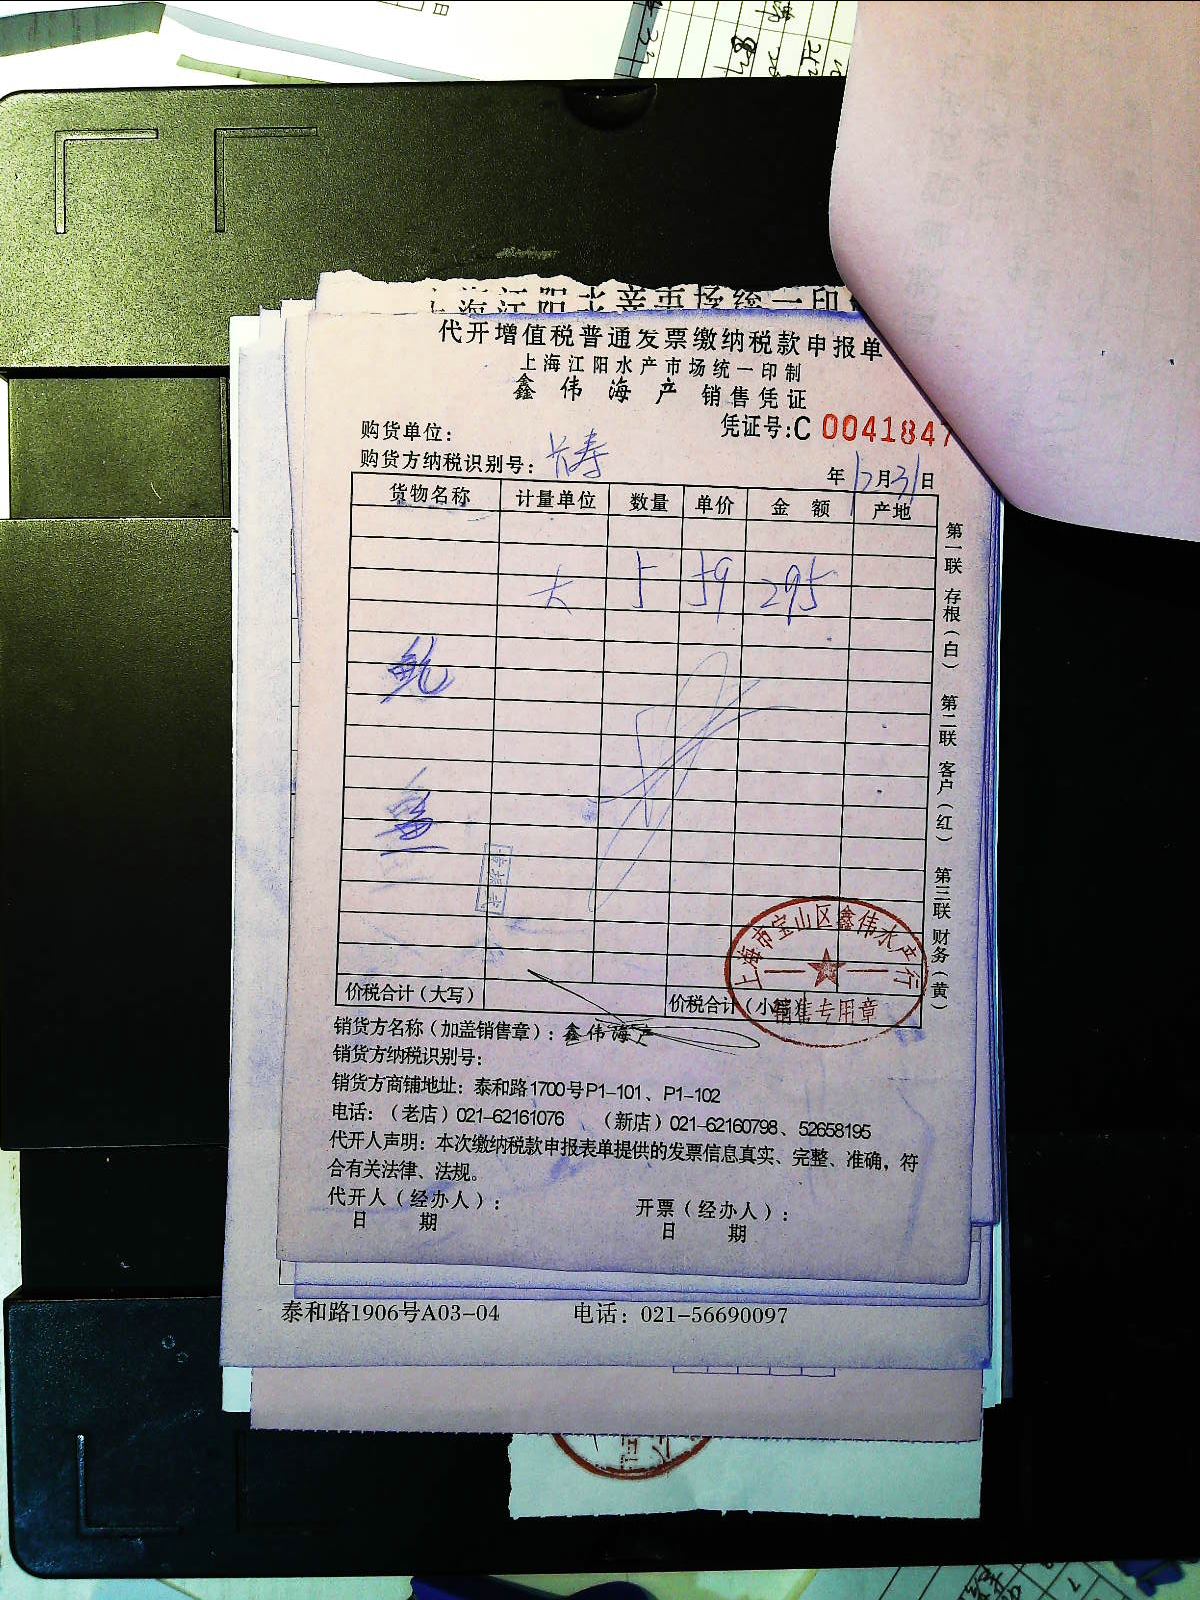 代开增值税普通发票缴纳税款申报单
上海江阳水产市场统一印制
鑫伟海产 销售凭证
凭证号:C 0041847
购货单位:
购货方纳税识别号: 长寿
年12月31日
货物名称 计量单位 数量 单价 金额 产地
大 5 59 295
鲍
鱼
价税合计(大写) 价税合计(小写)
上海市宝山区鑫伟水产行
销售专用章
第一联 存根(白) 第二联 客户(红) 第三联 财务(黄)
销货方名称(加盖销售章): 鑫伟海产
销货方纳税识别号:
销货方商铺地址: 泰和路1700号P1-101、P1-102
电话: (老店) 021-62161076 (新店) 021-62160798、52658195
代开人声明: 本次缴纳税款申报表单提供的发票信息真实、完整、准确, 符
合有关法律、法规。
代开人(经办人): 开票(经办人):
日 期 日 期
泰和路1906号A03-04 电话: 021-56690097